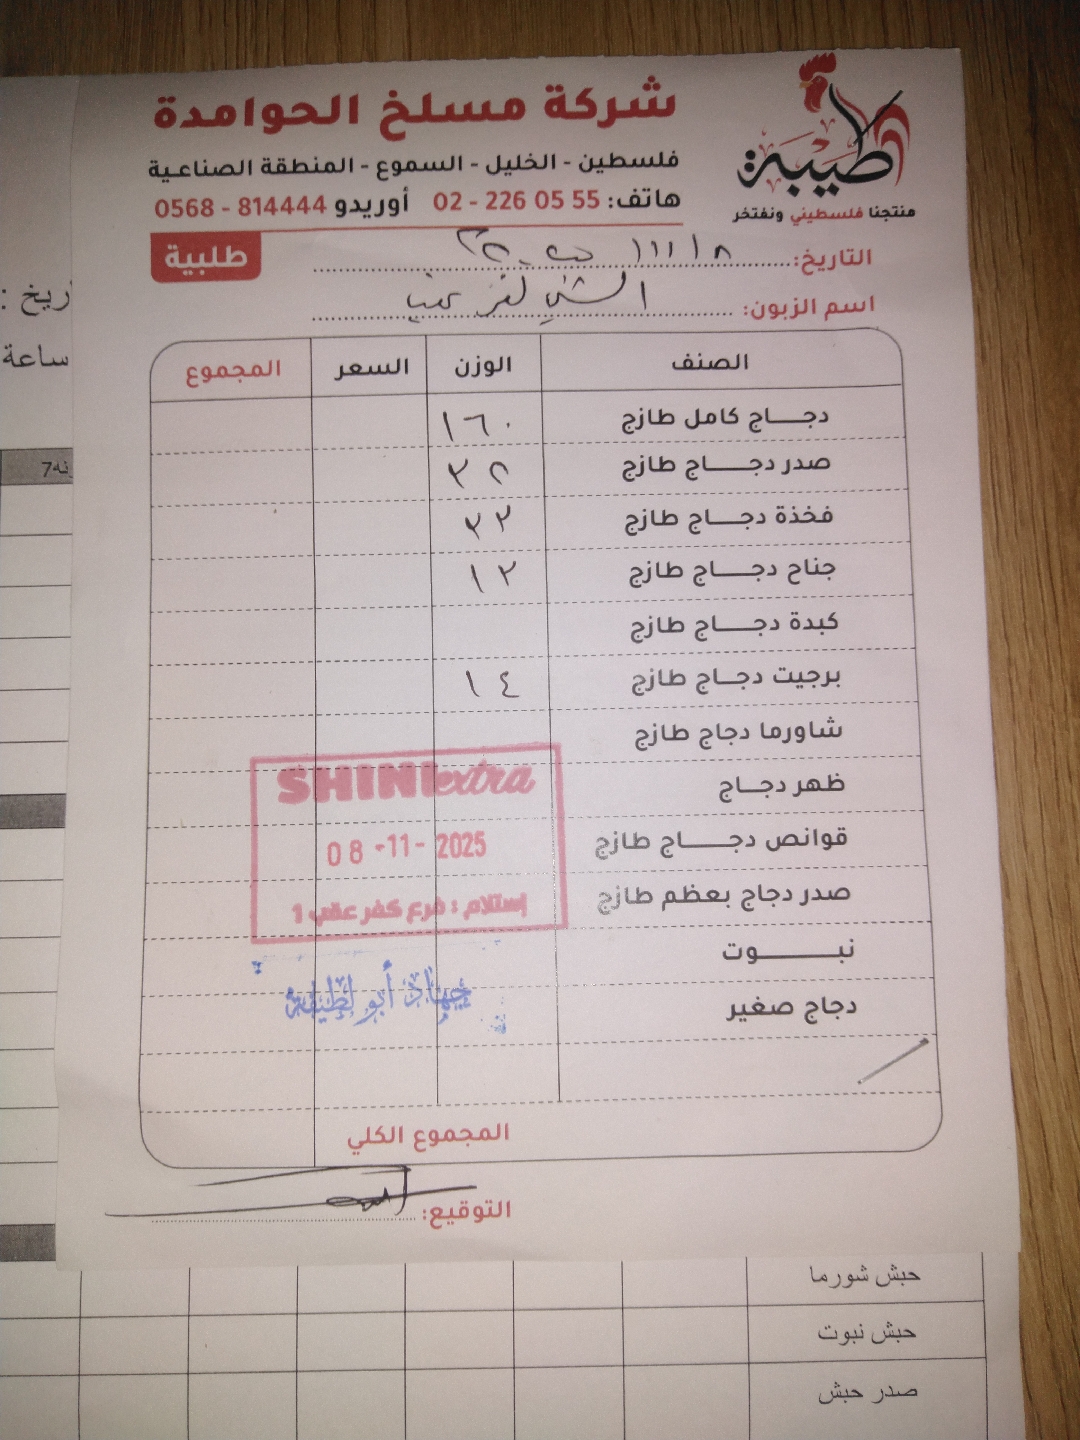 شركة مسلخ الحوامدة
فلسطين - الخليل - السموع - المنطقة الصناعية
هاتف: 02 - 226 05 55 أوريدو 0568 - 814444
طيبة
منتجنا فلسطيني ونفتخر
طلبية
التاريخ: ٨ / ١١
اسم الزبون: الشني كفر عقب
الصنف الوزن السعر المجموع
دجاج كامل طازج ١٦٠
صدر دجاج طازج ٣٨
فخذة دجاج طازج ٢٢
جناح دجاج طازج ١٢
كبدة دجاج طازج
برجيت دجاج طازج ١٤
شاورما دجاج طازج
ظهر دجاج
قوانص دجاج طازج
صدر دجاج بعظم طازج
نبوت
دجاج صغير
SHINI extra
08 -11- 2025
إستلام : فرع كفر عقب 1
جهاد أبو لطيفة
المجموع الكلي
التوقيع:
اريخ :
ساعة
نه7
حبش شورما
حبش نبوت
صدر حبش